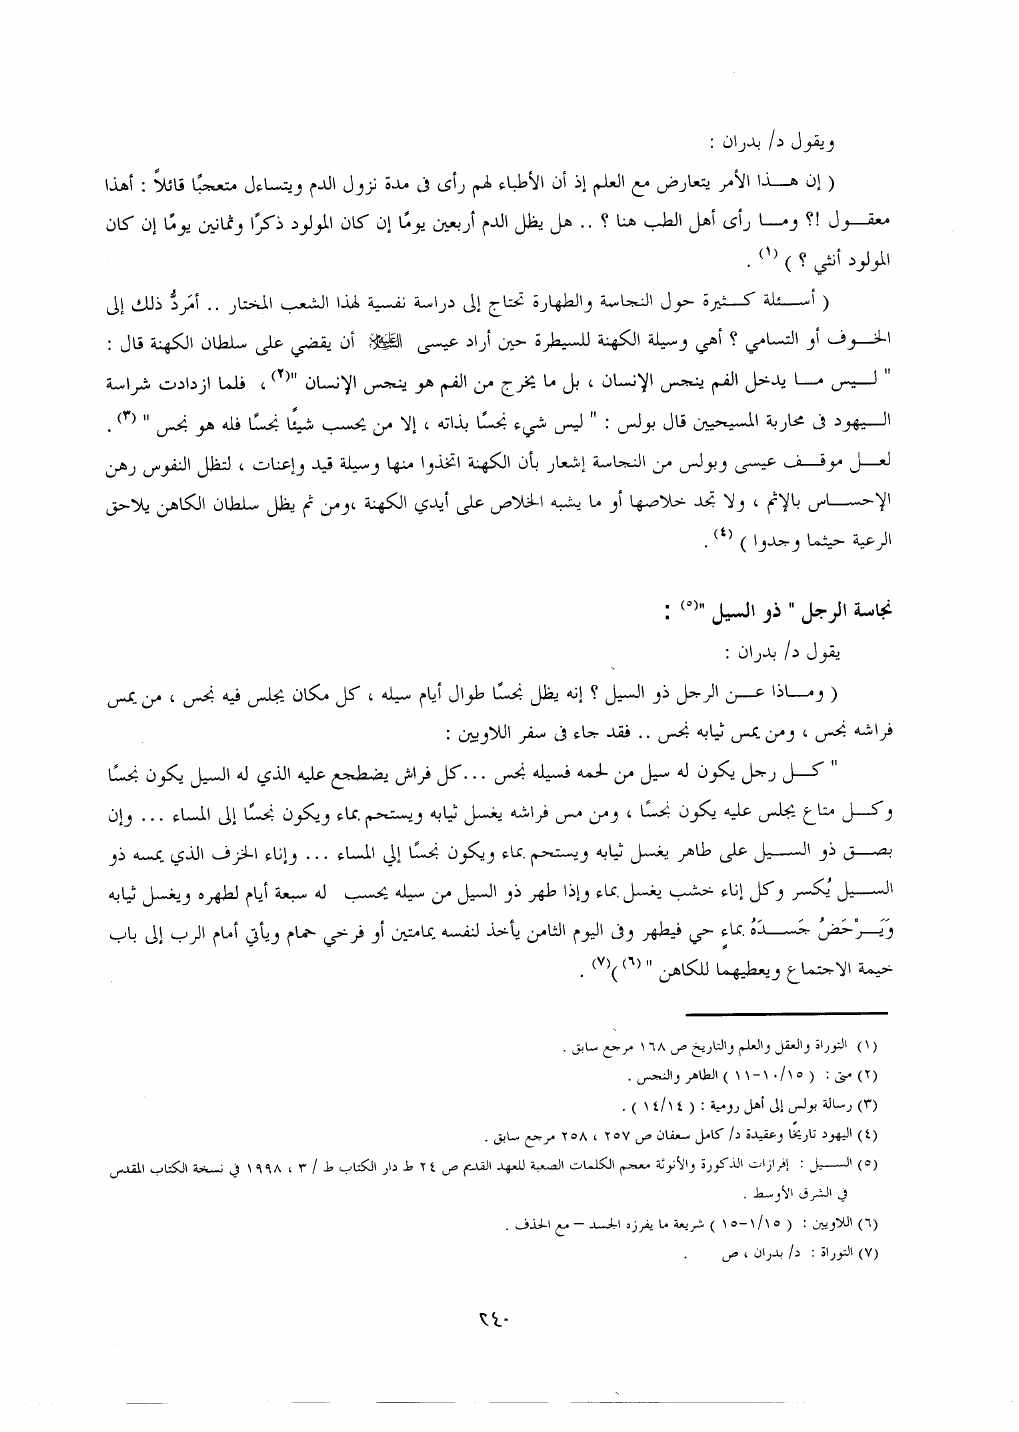 ويقول د/ بدران :
( إن هـــذا الأمر يتعارض مع العلم إذ أن الأطباء لهم رأى فى مدة نزول الدم ويتساءل متعجبًا قائلاً : أهذا
معقـــول !؟ ومـــا رأى أهل الطب هنا ؟ .. هل يظل الدم أربعين يومًا إن كان المولود ذكرًا وثمانين يومًا إن كان
المولود أنثي ؟ ) (١) .
( أســـئلة كـــثيرة حول النجاسة والطهارة تحتاج إلى دراسة نفسية لهذا الشعب المختار .. أمَردُّ ذلك إلى
الخـــوف أو التسامي ؟ أهي وسيلة الكهنة للسيطرة حين أراد عيسى عليه السلام أن يقضي على سلطان الكهنة قال :
" لـــيس مـــا يدخل الفم ينجس الإنسان ، بل ما يخرج من الفم هو ينجس الإنسان "(٢)، فلما ازدادت شراسة
الـــيهود فى محاربة المسيحيين قال بولس : " ليس شيء نجسًا بذاته ، إلا من يحسب شيئًا نجسًا فله هو نجس " (٣) .
لعـــل موقـــف عيسى وبولس من النجاسة إشعار بأن الكهنة اتخذوا منها وسيلة قيد وإعنات ، لتظل النفوس رهن
الإحســـاس بالإثم ، ولا تجد خلاصها أو ما يشبه الخلاص على أيدي الكهنة ،ومن ثم يظل سلطان الكاهن يلاحق
الرعية حيثما وجدوا ) (٤) .
نجاسة الرجل " ذو السيل "(٥) :
يقول د/ بدران :
( ومـــاذا عـــن الرجل ذو السيل ؟ إنه يظل نجسًا طوال أيام سيله ، كل مكان يجلس فيه نجس ، من يمس
فراشه نجس ، ومن يمس ثيابه نجس .. فقد جاء فى سفر اللاويين :
" كـــل رجل يكون له سيل من لحمه فسيله نجس ...كل فراش يضطجع عليه الذي له السيل يكون نجسًا
وكـــل متاع يجلس عليه يكون نجسًا ، ومن مس فراشه يغسل ثيابه ويستحم بماء ويكون نجسًا إلى المساء ... وإن
بصـــق ذو الســـيل على طاهر يغسل ثيابه ويستحم بماء ويكون نجسًا إلي المساء ... وإناء الخزف الذي يمسه ذو
الســـيل يُكسر وكل إناء خشب يغسل بماء وإذا طهر ذو السيل من سيله يحسب له سبعة أيام لطهره ويغسل ثيابه
وَيَـــرْحَضُ جَســـدَهُ بماءٍ حي فيطهر وفى اليوم الثامن يأخذ لنفسه يمامتين أو فرخي حمام ويأتي أمام الرب إلى باب
خيمة الاجتماع ويعطيهما للكاهن " (٦))(٧) .
(١) التوراة والعقل والعلم والتاريخ ص ١٦٨ مرجع سابق .
(٢) متى : ( ١٥/ ١٠-١١ ) الطاهر والنجس .
(٣) رسالة بولس إلى أهل رومية : ( ١٤/١٤ ) .
(٤) اليهود تاريخًا وعقيدة د/ كامل سعفان ص ٢٥٧ ، ٢٥٨ مرجع سابق .
(٥) الســـيل : إفرازات الذكورة والأنوثة معجم الكلمات الصعبة للعهد القديم ص ٢٤ ط دار الكتاب ط / ٣ ، ١٩٩٨ في نسخة الكتاب المقدس
في الشرق الأوسط .
(٦) اللاويين : ( ١٥/ ١-١٥ ) شريعة ما يفرزه الجسد – مع الحذف .
(٧) التوراة : د/ بدران ، ص .
٢٤٠